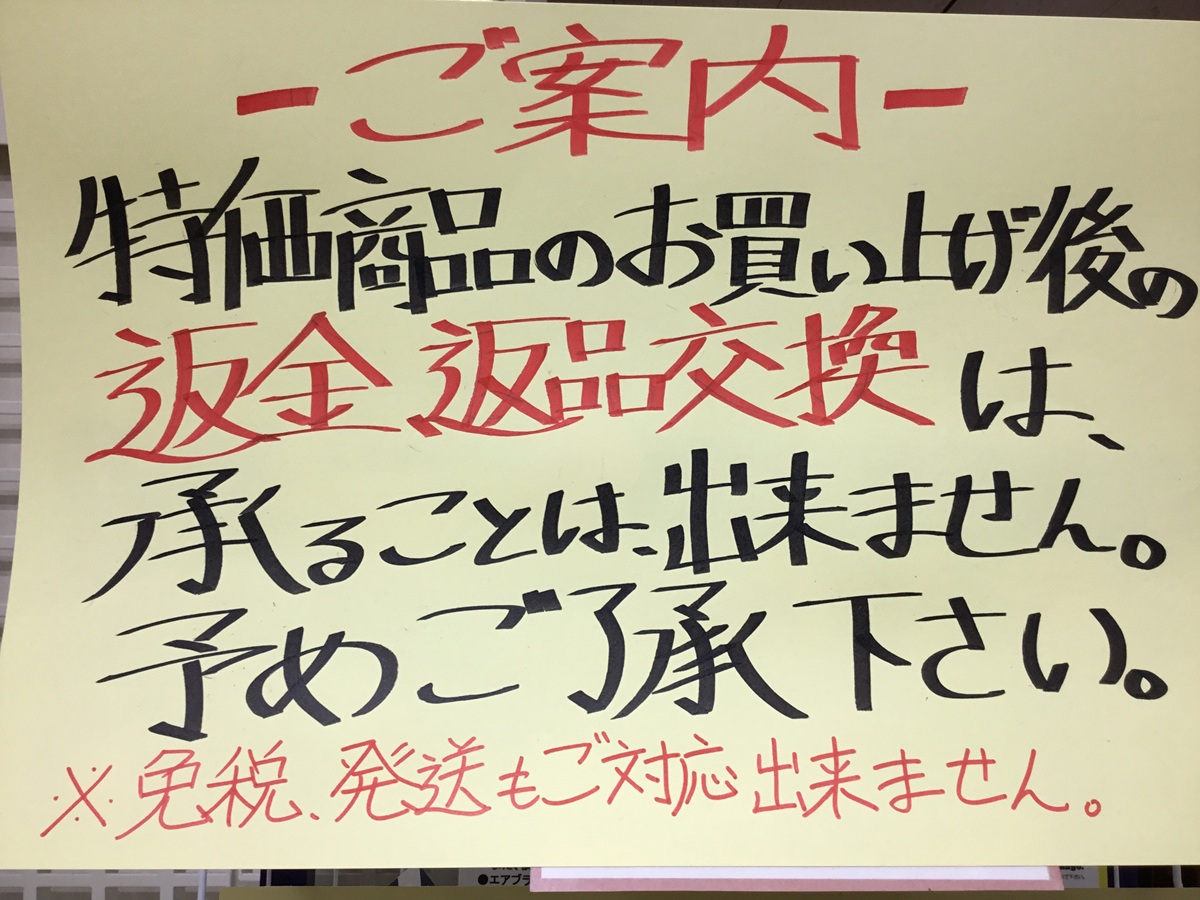 -ご案内-
特価商品のお買い上げ後の
返金、返品交換は、
承ることは、出来ません。
予めご了承下さい。
※免税、発送もご対応出来ません。
●エアブラ